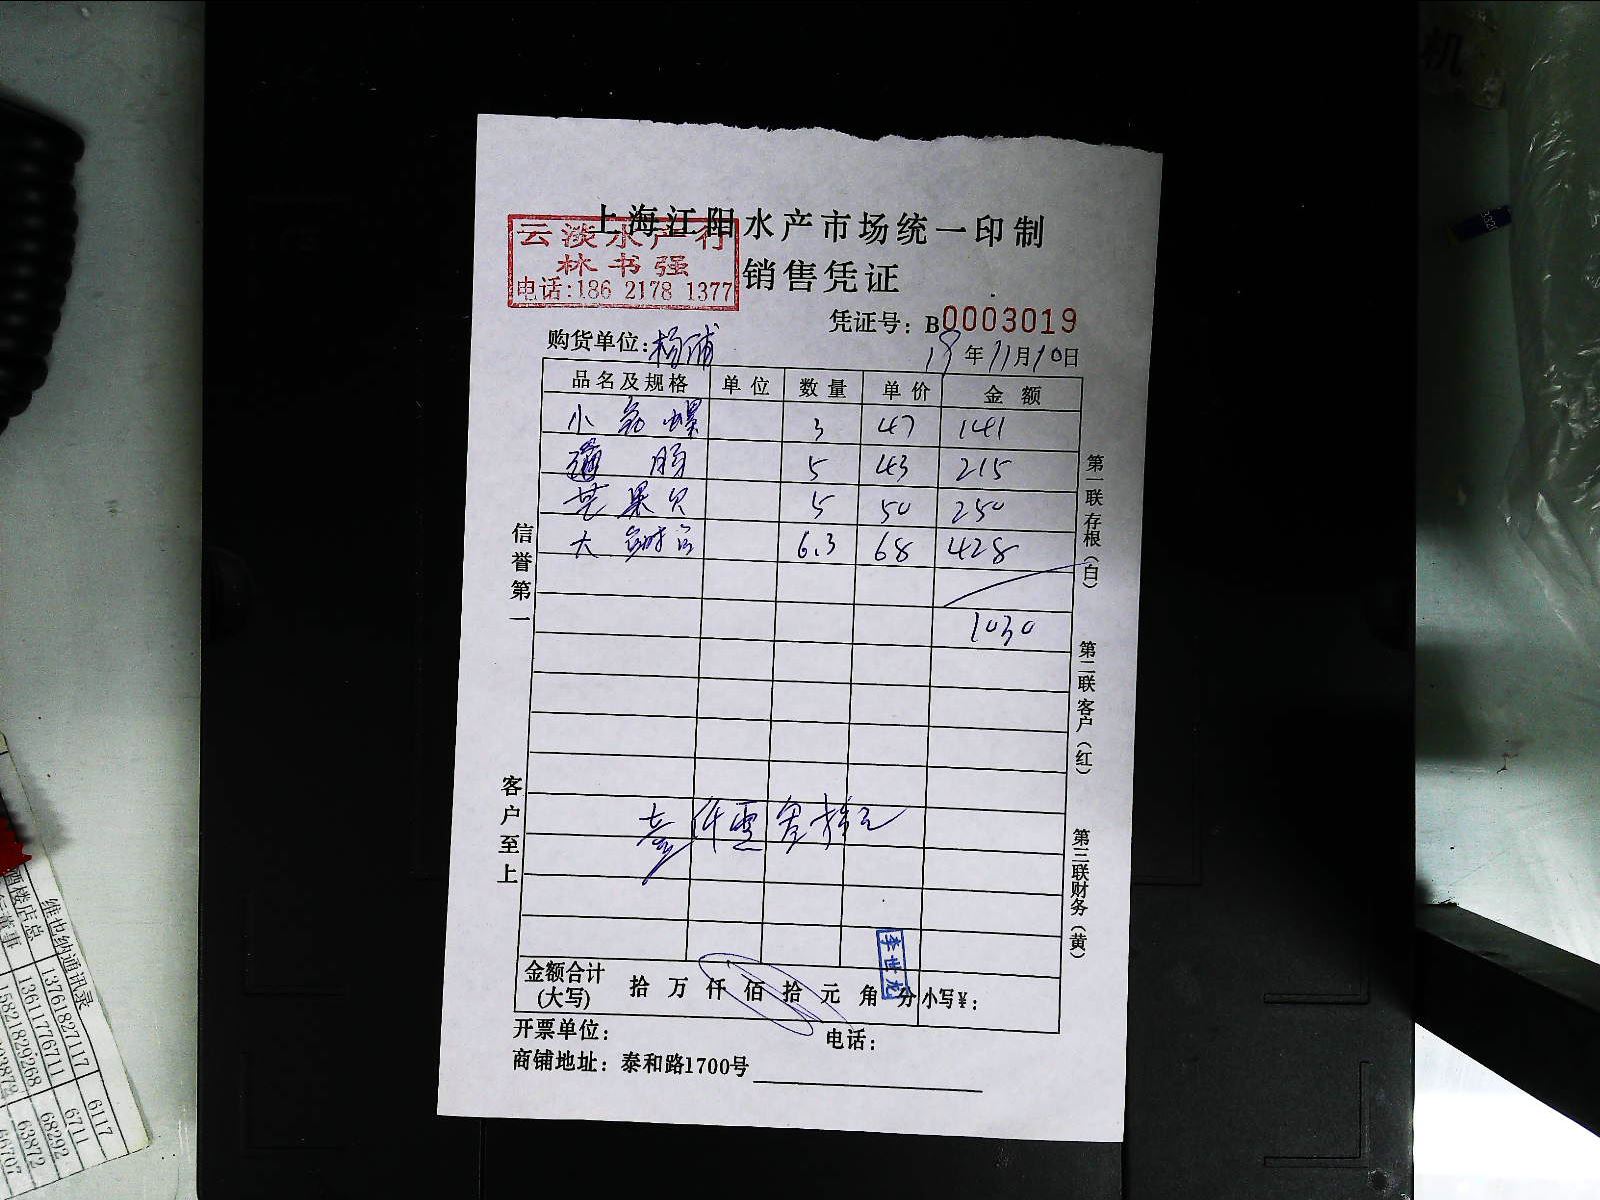 上海江阳水产市场统一印制
云淡水产行
林书强
电话:186 2178 1377
销售凭证
凭证号: B0003019
购货单位:杨浦
18年11月10日
品名及规格 单位 数量 单价 金额
小 螺 3 47 141
肠 5 43 215
芒果贝 5 50 250
大 6.3 68 428
1030
壹仟零叁拾元
金额合计(大写) 拾 万 仟 佰 拾 元 角 分 小写¥:
李世龙
开票单位: 电话:
商铺地址: 泰和路1700号
信誉第一
客户至上
第一联存根(白)
第二联客户(红)
第三联财务(黄)
机
维也纳通讯录
酒楼店总 13761827117 6117
董事 13611776711 6711
15821829268 68292
63872